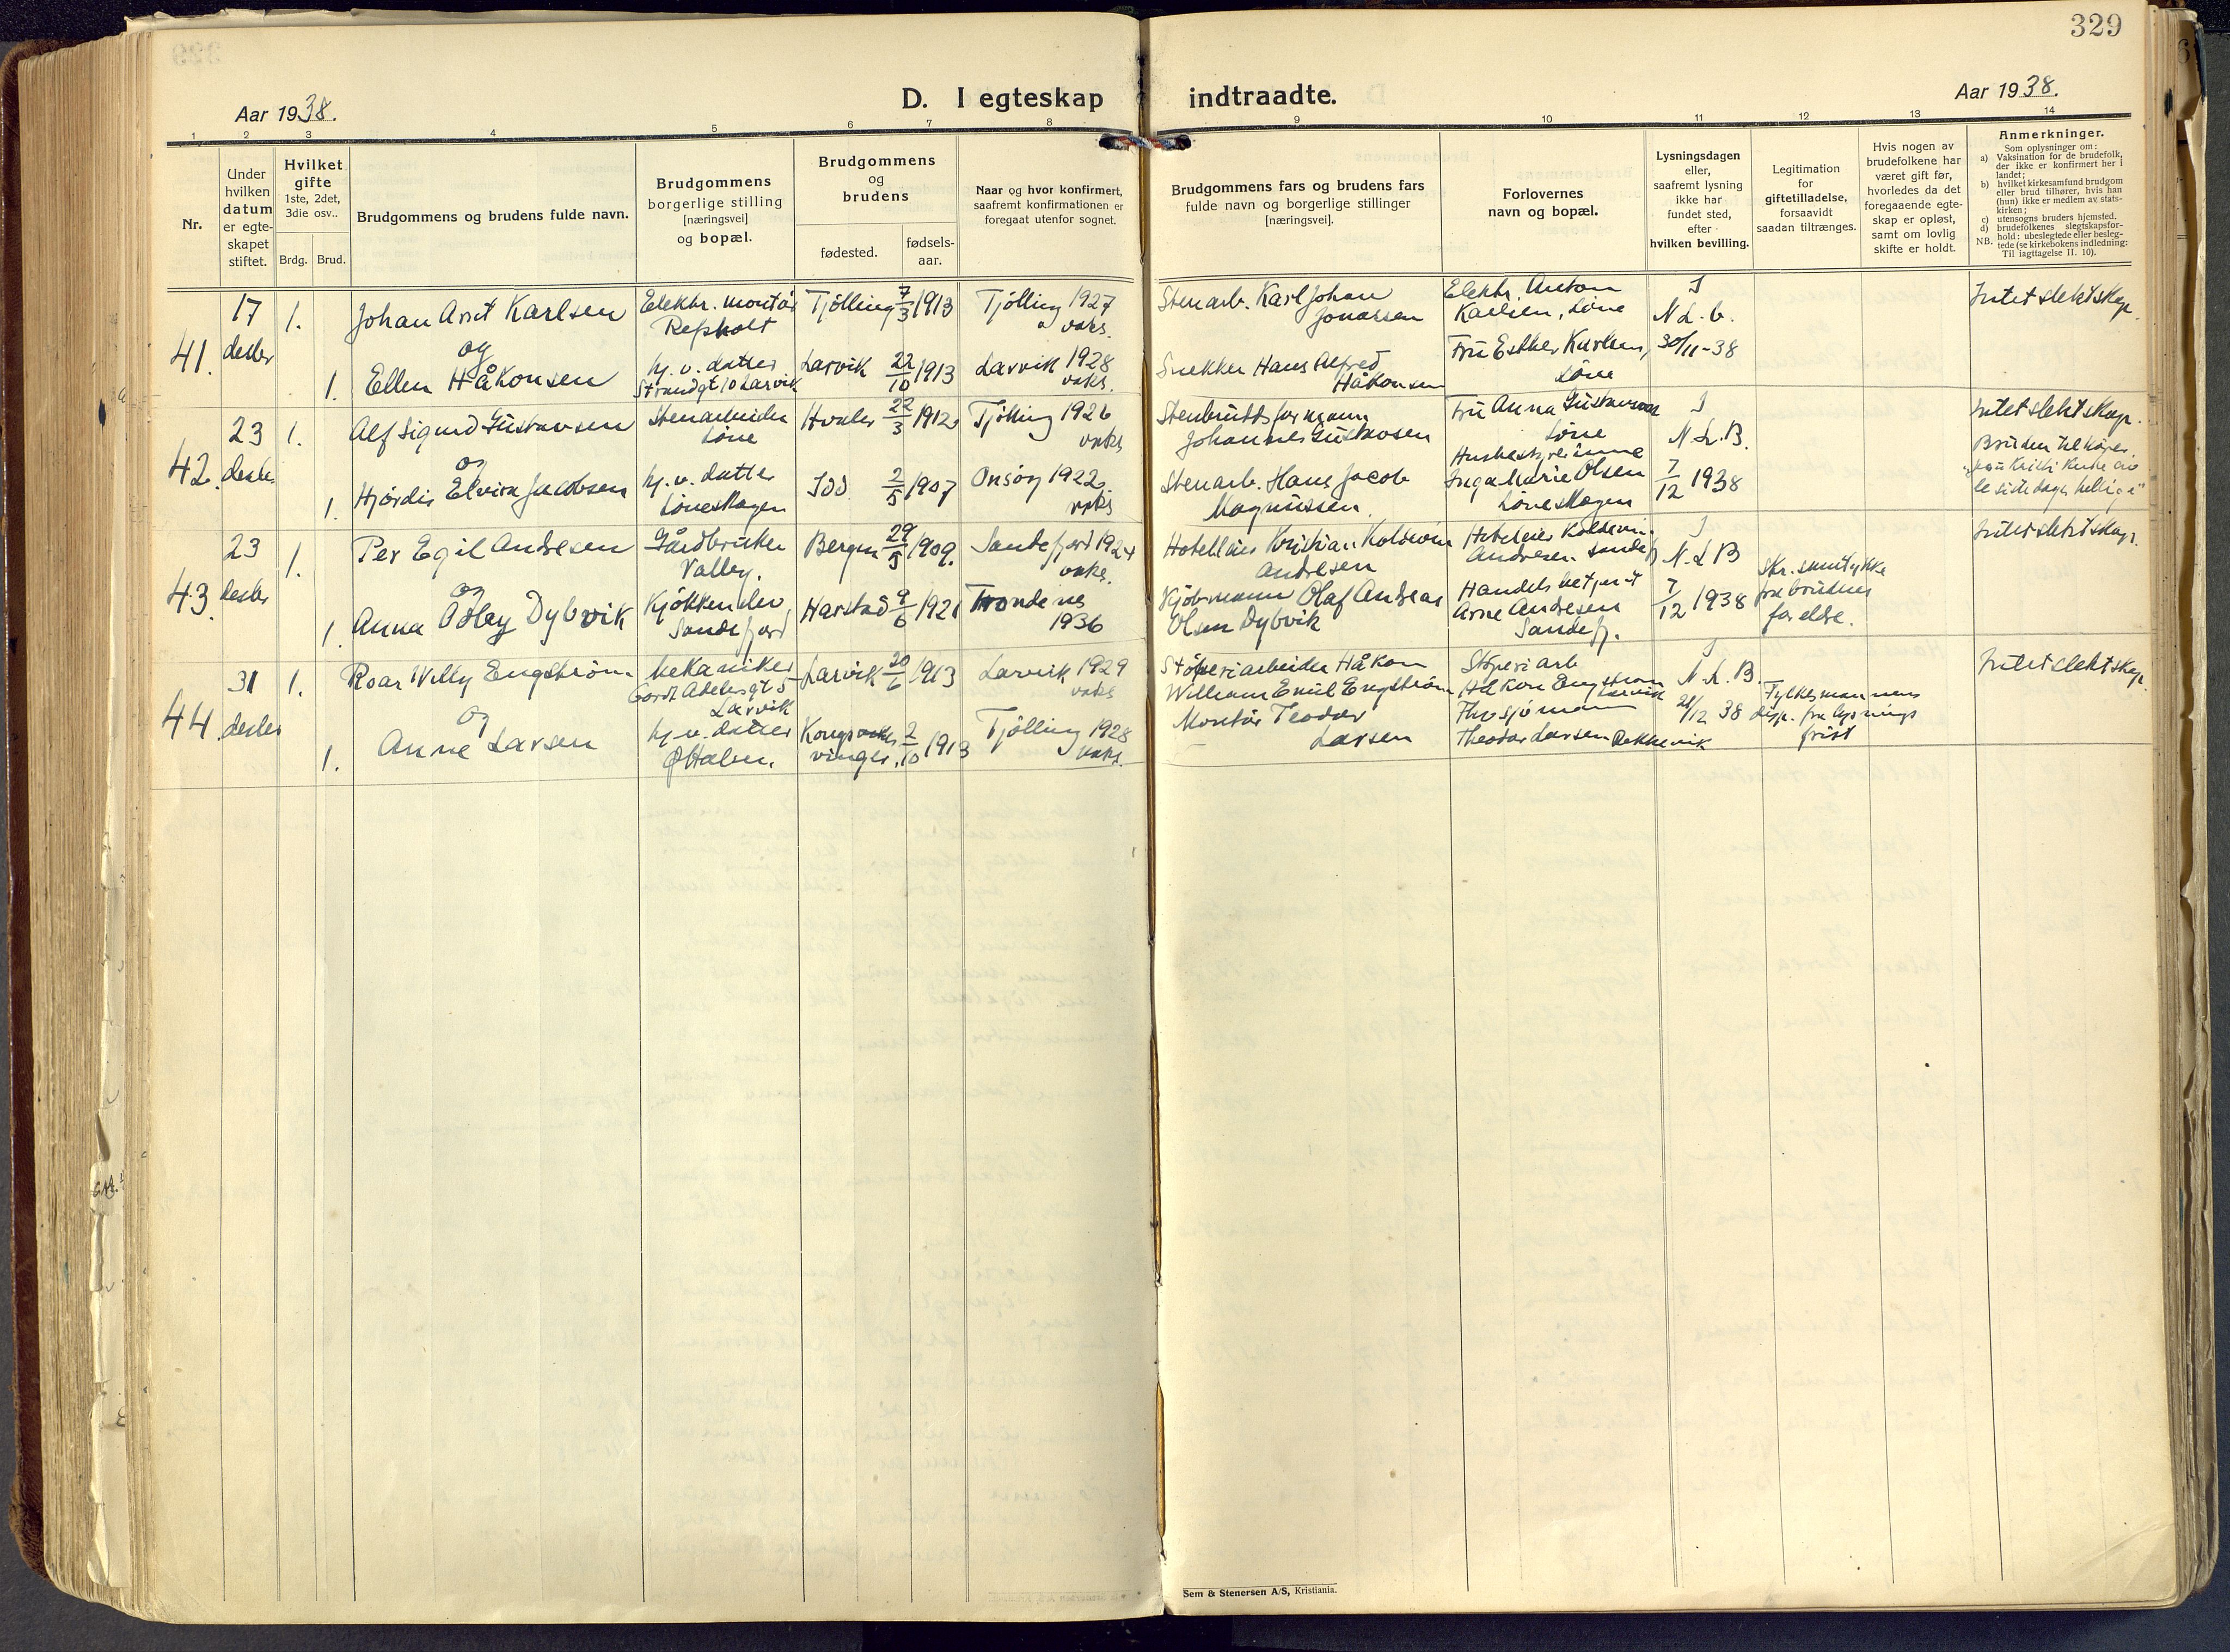 329
Aar 1938.
D. I egteskap indtraadte.
Aar 1938.
1 2 3 4 5 6 7 8 9 10 11 12 13 14
Nr.
Under
hvilken
datum
er egte-
skapet
stiftet.
Hvilket
gifte
1ste, 2det,
3die osv..
Brdg. Brud.
Brudgommens og brudens fulde navn.
Brudgommens
borgerlige stilling
[næringsvei]
og bopæl.
Brudgommens
og
brudens
fødested.
fødsels-
aar.
Naar og hvor konfirmert,
saafremt konfirmationen er
foregaat utenfor sognet.
Brudgommens fars og brudens fars
fulde navn og borgerlige stillinger
[næringsvei].
Forlovernes
navn og bopæl.
Lysningsdagen
eller,
saafremt lysning
ikke har
fundet sted,
efter
hvilken bevilling.
Legitimation
for
giftetilladelse,
forsaavidt
saadan tiltrænges.
Hvis nogen av
brudefolkene har
været gift før,
hvorledes da det
foregaaende egte-
skap er opløst,
samt om lovlig
skifte er holdt.
Anmerkninger.
Som oplysninger om:
a) Vaksination for de brudefolk,
der ikke er konfirmert her i
landet;
b) hvilket kirkesamfund brudgom
eller brud tilhører, hvis han
(hun) ikke er medlem av stats-
kirken;
c) utensogns bruders hjemsted.
d) brudefolkenes slegtskapsfor-
hold: ubeslegtede eller besleg-
NB. tede (se kirkebokens indledning:
Til iagttagelse II. 10).
41.
17
desbr
1.
Johan Arnt Karlsen
og
1. Ellen Håkonsen
Elektr. montør
h. v. datter
Strandgt 10 Larvik
Tjølling 7/3 1913
Larvik 22/10 1913
Tjølling 1927
vaks.
Larvik 1928
vaks.
Stenarb. Karl Johan
Jonassen
Snekker Hans Alfred
Håkonsen
Elektr. Anton
Karlsen, Løve
Fru Esther Karlsen,
Løve
N L. b.
30/11-38
Intet slektskap.
42.
23
desbr.
1.
Alf Sigurd Gustavsen
og
1. Hjørdis Elvira Jacobsen
Stenarbeider
Løve
hj. v. datter
Løveskogen
Hvaler 22/3 1912
Idd 2/5 1907
Tjølling 1926
vaks
Onsøy 1922.
vaks
Stenbruddsformann
Johannes Gustavsen
Stenarb. Hans Jacob
Magnussen.
Fru Anna Gustavsen
Løve
Husbestyrerinne
Inga Marie Olsen
Løveskogen
N. L. B.
7/12 1938
Intet slektskap.
Bruden tilhører
"Jesu Kristi Kirke av
de siste dagers hellige"
43.
23
desbr
1.
Per Egil Andresen
og
1. Anna Odley Dybvik
Gårdbruker
Valby.
Kjøkkenelev
Sandefjord
Bergen 29/5 1909.
Harstad 9/6 1921
Sandefjord 1924
vaks.
Trondenes
1936
Hotelleier Kristian Koldevin
Andresen
Kjøbmann Olaf Andreas
Olsen Dybvik
Hoteleier Koldevin
Andresen. Sandefj
Handelsbetjent
Arne Andresen
Sandefj.
N. L B
7/12 1938
Skr. samtykke
fra brudens
foreldre.
Intet slektskap.
44.
31
desbr
1.
Roar Willy Engstrøm
og
1. Anne Larsen
Mekaniker
Larvik
hj. v. datter
Østhalsen.
Larvik 20/6 1913
Kongsvinger. 2/10 1913
Larvik 1929
vaks
Tjølling 1928
vaks.
Støperiarbeider Håkon
William Emil Engstrøm
Montør Teodor
Larsen
Støperiarb
Håkon Engstrøm
Larvik
Theodor Larsen Rekkevik
N. L. B.
21/12 38
Fylkesmannens
disp. fra lysnings
frist
Intet slektskap
Sem & Stenersen A/S, Kristiania.